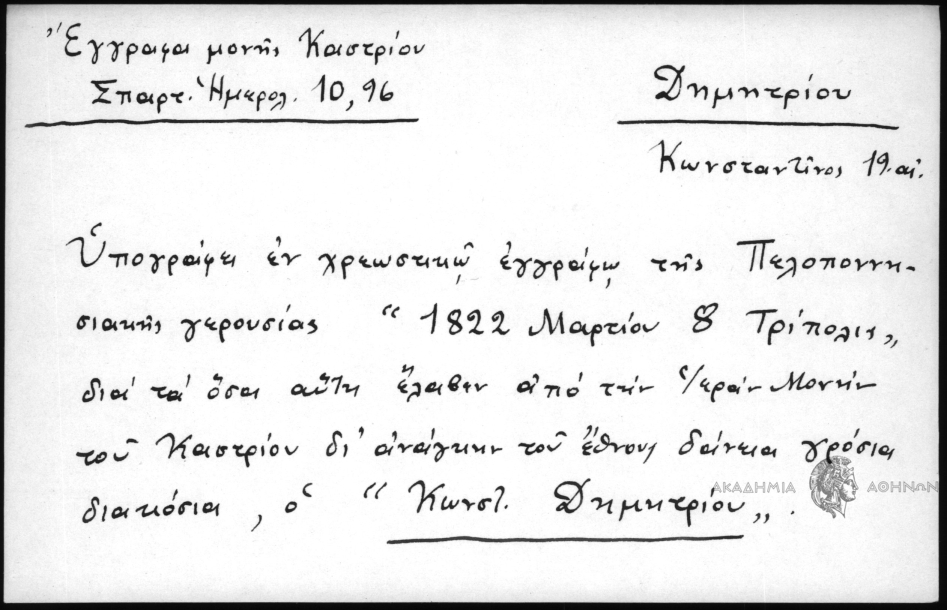 Ἔγγραφα μονῆς Καστρίου
Σπαρτ. Ἡμερολ. 10, 96
Δημητρίου
Κωνσταντῖνος 19. αἰ.
Ὑπογράφει ἐν χρεωστικῷ ἐγγράφῳ τῆς Πελοποννη-
σιακῆς γερουσίας “1822 Μαρτίου 8 Τρίπολις„
διά τά ὅσα αὕτη ἔλαβεν ἀπό τήν Ἱεράν Μονήν
τοῦ Καστρίου δι’ ἀνάγκην τοῦ ἔθνους δάνεια γρόσια
διακόσια, ὁ “Κωνστ. Δημητρίου„.
ΑΚΑΔΗΜΙΑ ΑΘΗΝΩΝ